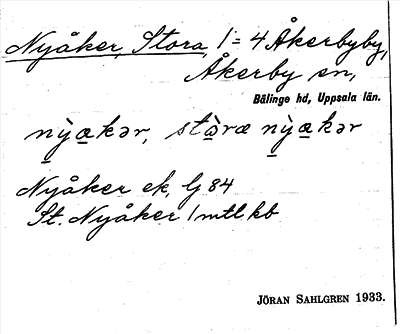 Nyåker, Stora, 1:4 Åkerbyby,
Åkerby sn,
Bälinge hd, Uppsala län.
nỳa̱kər, stòræ nỳa̱kər
Nyåker ek, G 84
St. Nyåker 1 mtl kb
JÖRAN SAHLGREN 1933.